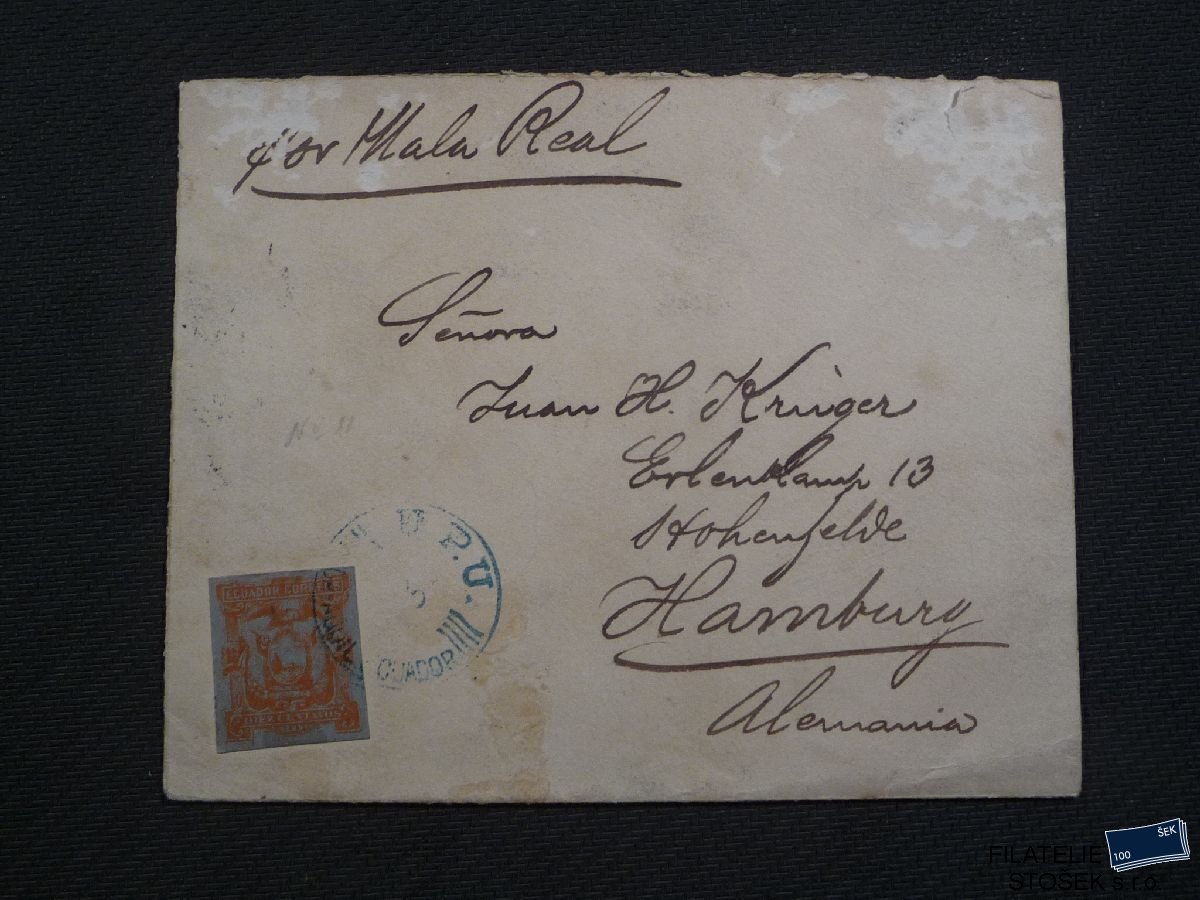 por Mala Real
Señora
Juan H. Krüger
Erlenkamp 13
Hohenfelde
Hamburg
Alemania
No 11
U.P.U.
ECUADOR
ECUADOR CORREOS
DIEZ CENTAVOS
FILATELIE
STOŠEK s.r.o.
100
ŠEK